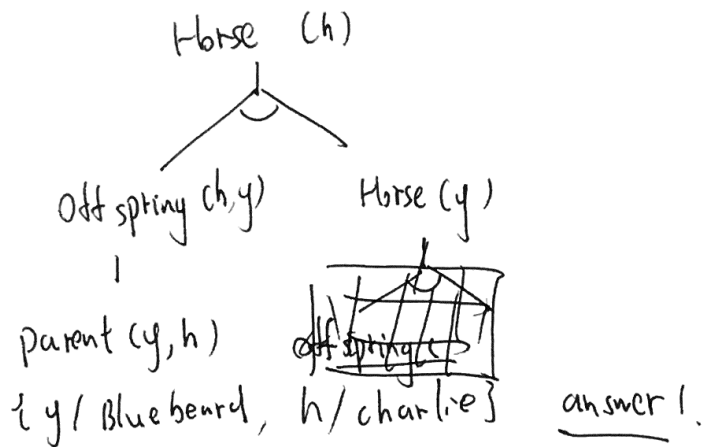 Horse (h)
Offspring (h,y) Horse (y)
parent (y, h) offspring (
{ y / Bluebeard, h / charlie} answer 1.